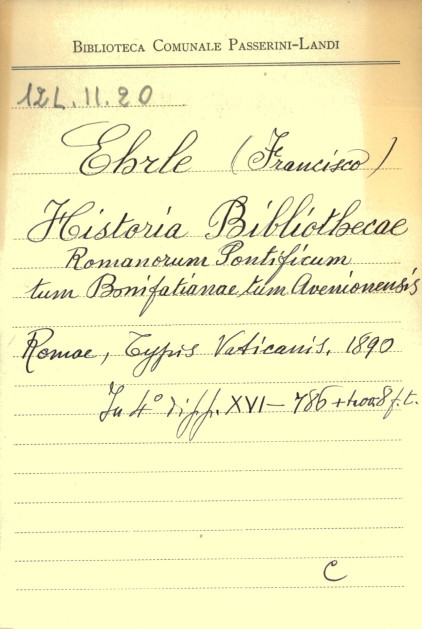 BIBLIOTECA COMUNALE PASSERINI-LANDI
12L.II.20
Ehrle (Francisco)
Historia Bibliothecae
Romanorum Pontificum
tum Bonifatianae, tum Avenionensis
Romae, Typis Vaticanis. 1890
In 4° di pp. XVI-786 + 8 f.t.
C